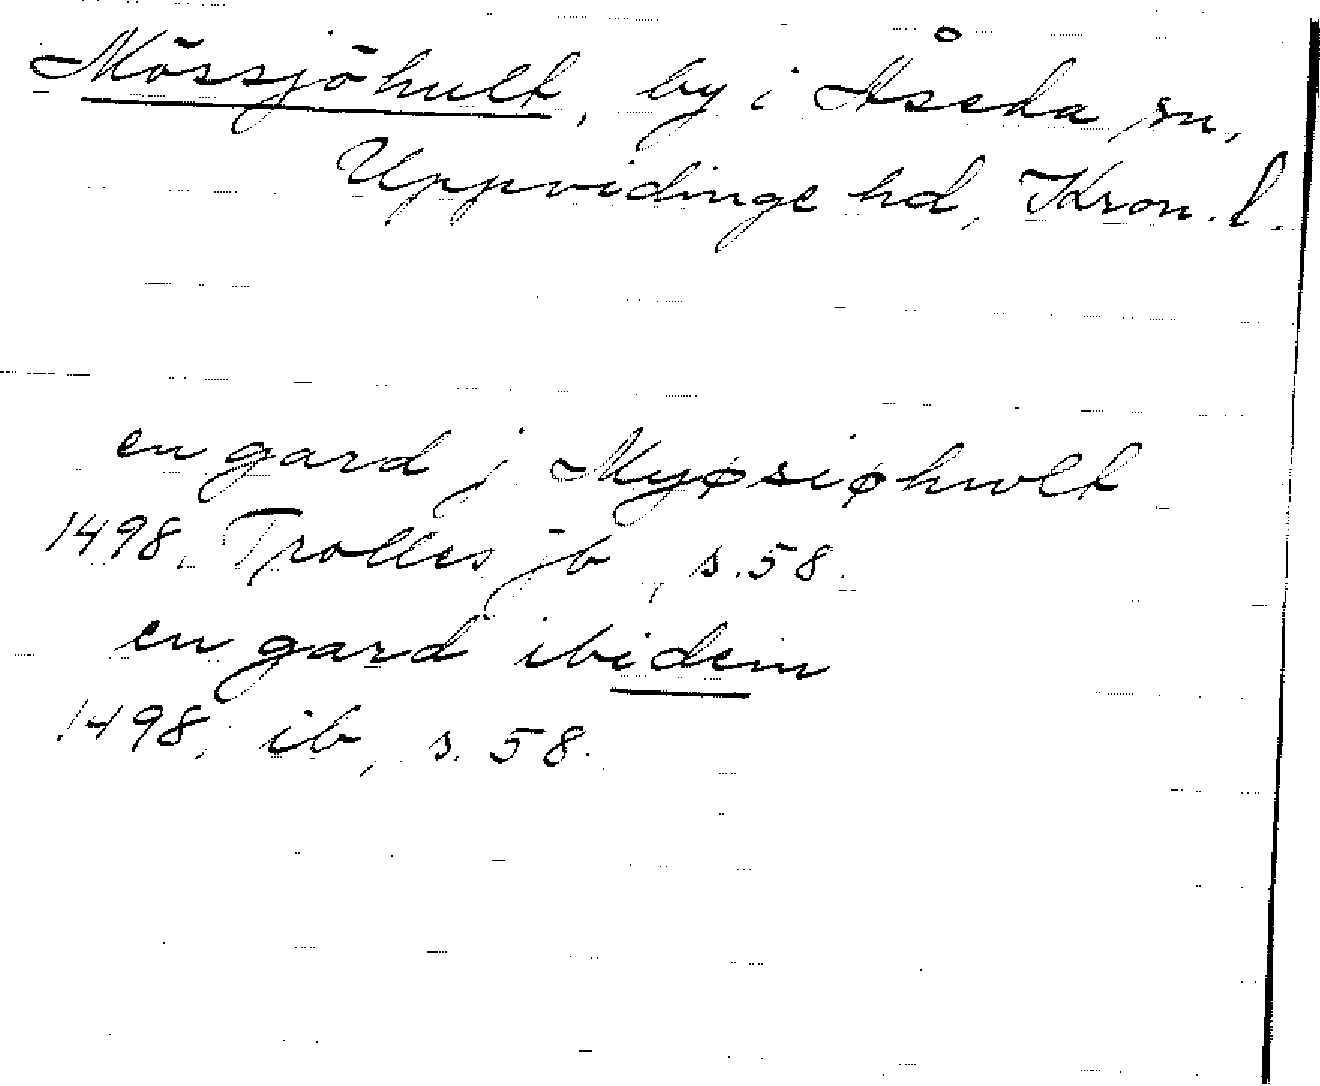 Mössjöhult, by i Åseda sn,
Uppvidinge hd, Kron. l.
en gard j Myøsiøhwlt
1498, Trolles jb, s. 58.
en gard ibidem
1498, ib, s. 58.